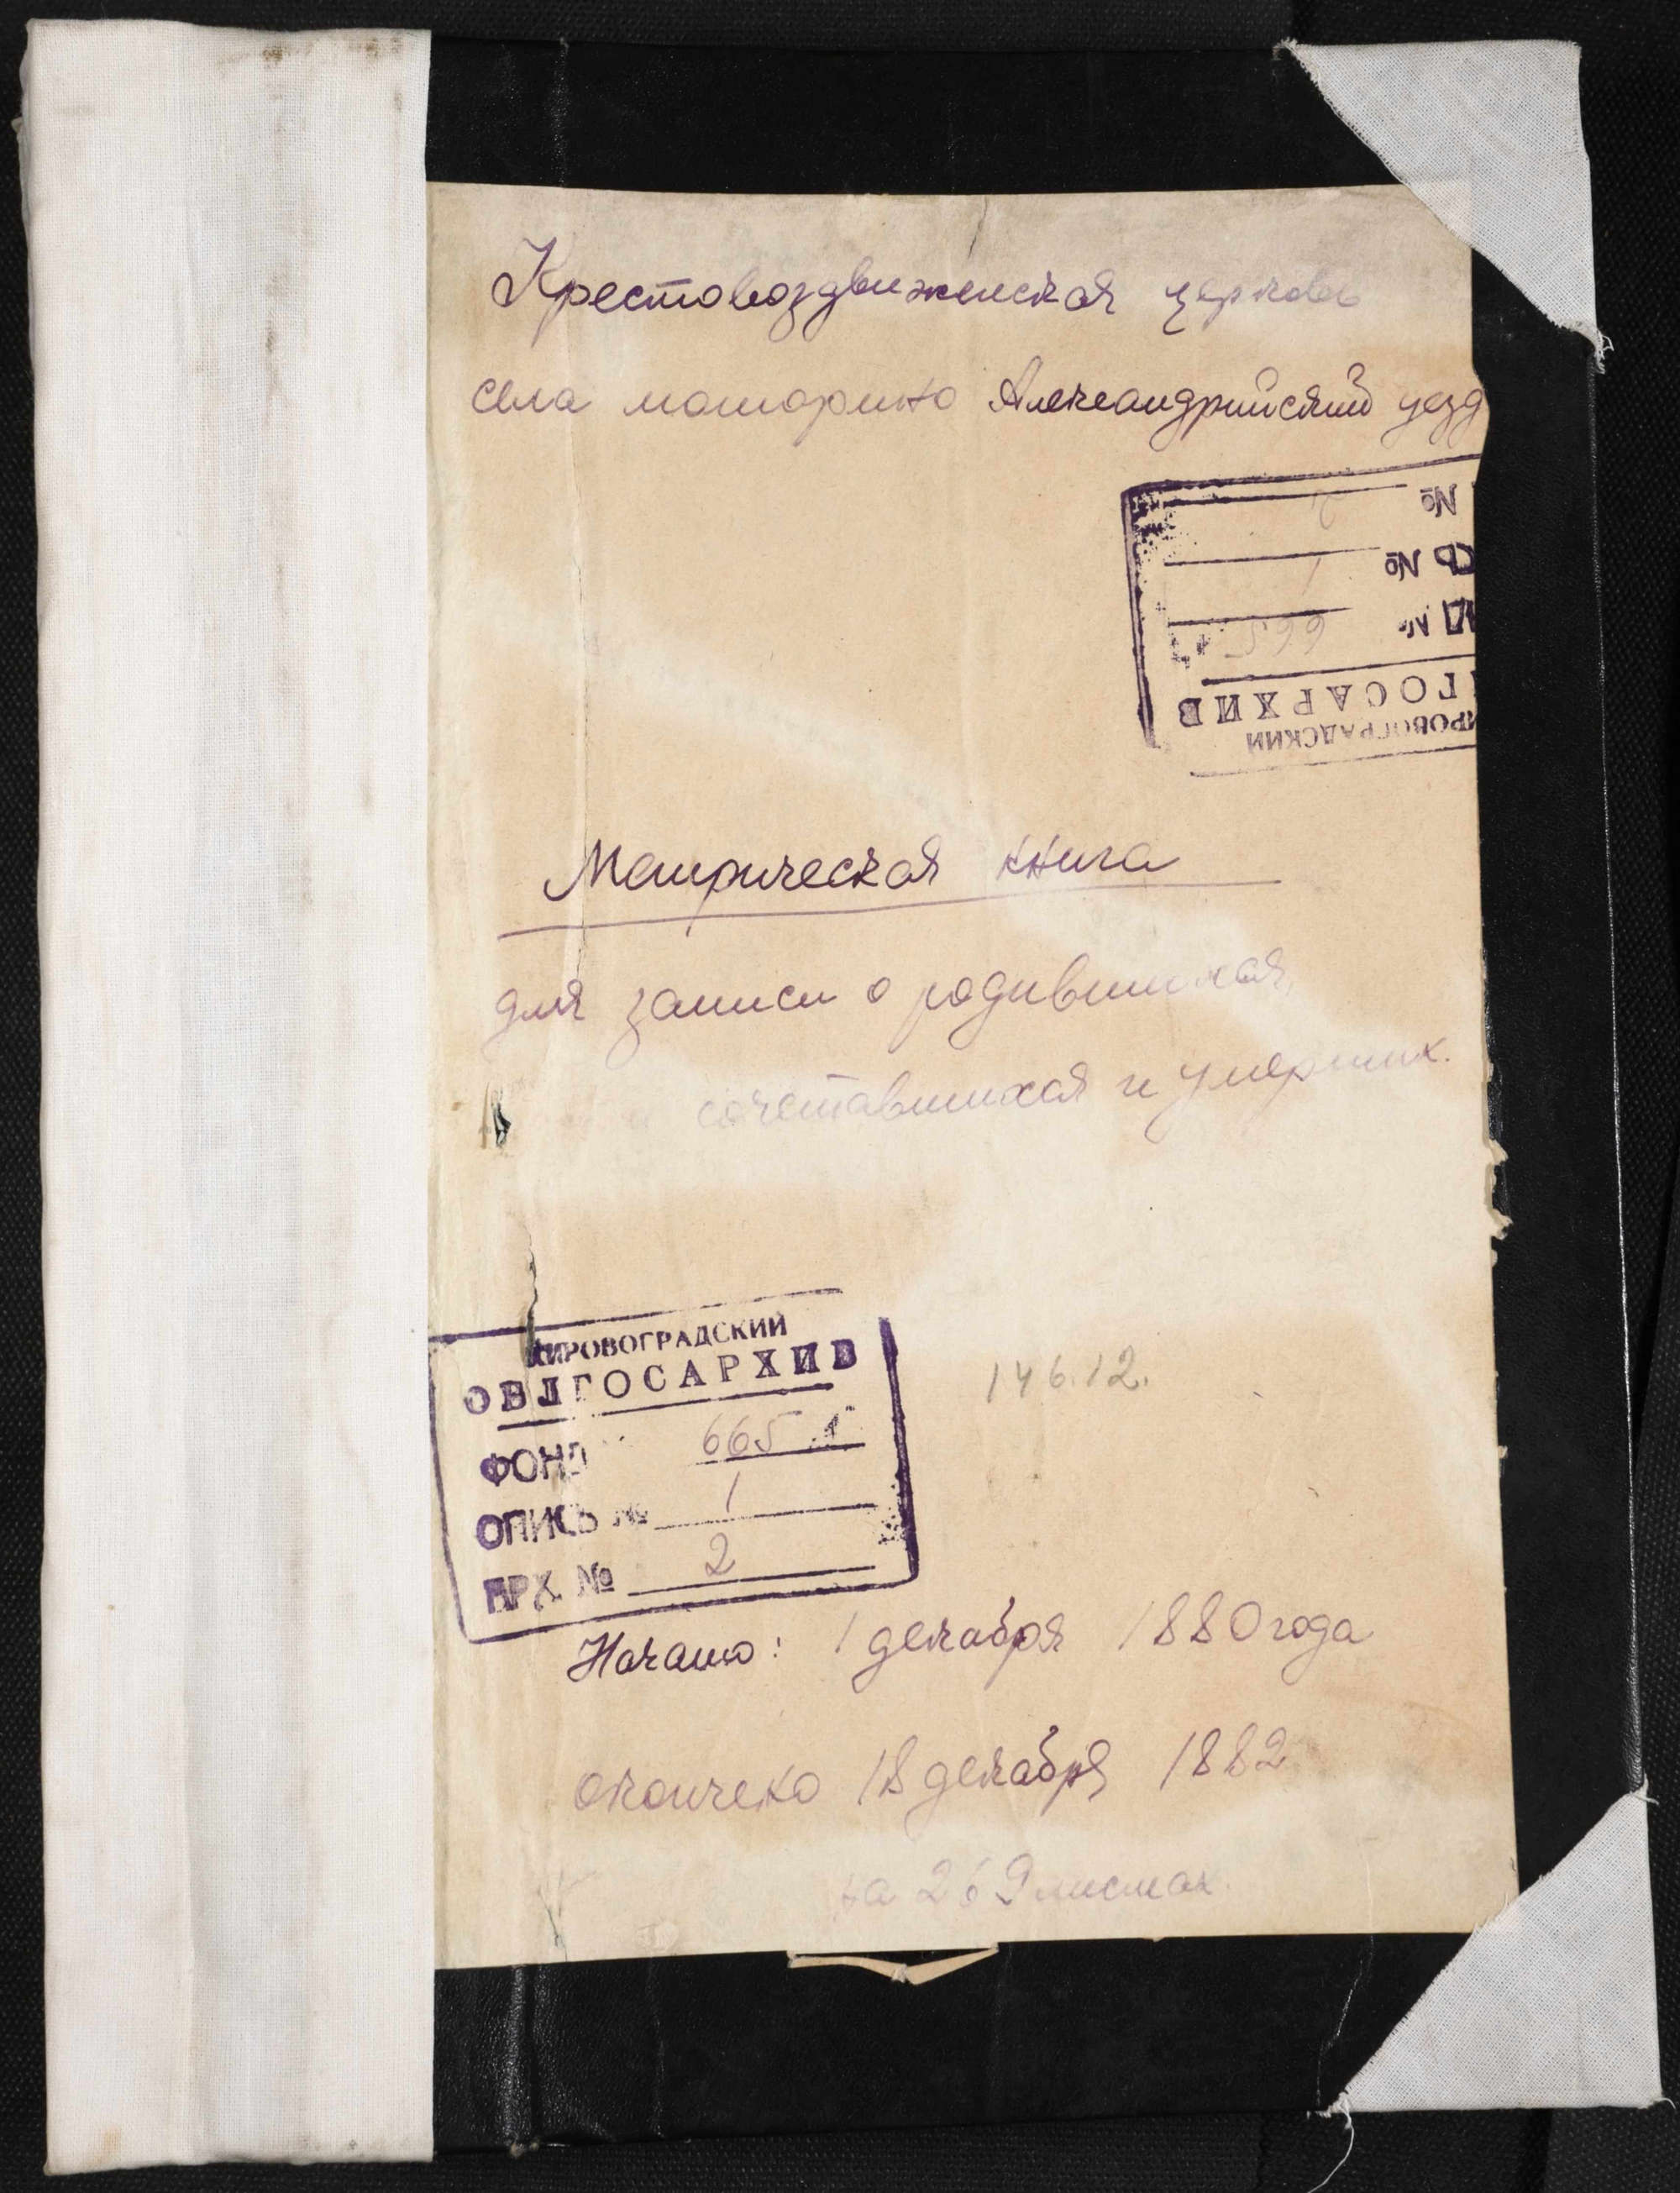 Крестовоздвиженская церковь
села моторино Александрийский уезд
№
СЬ № 1
НД № 665
ГОСАРХИВ
ИРОВОГРАДСКИЙ
Метрическая книга
для записи о родившихся,
сочетавшихся и умерших.
КИРОВОГРАДСКИЙ
ОБЛГОСАРХИВ
ФОНД 665
ОПИСЬ № 1
ЕРХ. № 2
146.12.
Начато: 1 декабря 1880 года
окончено 18 декабря 1882
на 269 листах